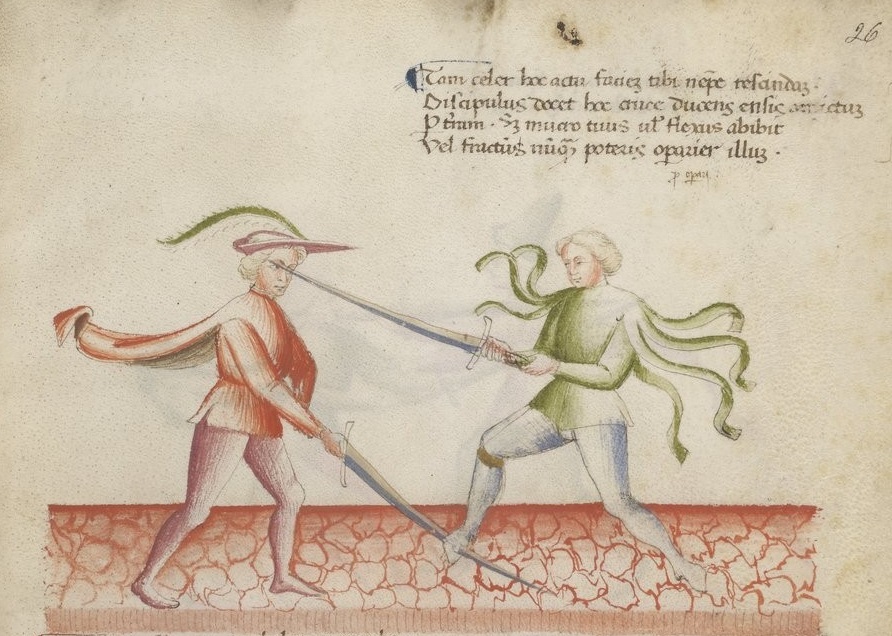 26
Tam celer hoc actu faciez tibi nēpe rescindaz .
Discipulus docet hoc cruce ducens ensis
Ptram . Sz mucro tuus ul̄ flexus abibit
Vel fractus nūqꝫ poteris opārier illuz .